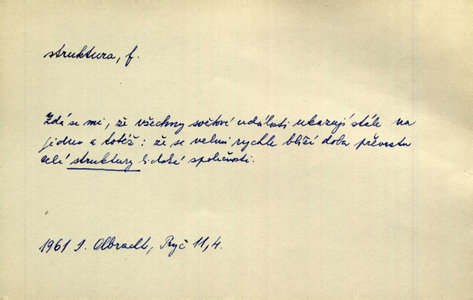 struktura, f.
Zdá se mi, že všechny světové události ukazují stále na
jedno a totéž: že se velmi rychle blíží doba převratu
celé struktury lidské společnosti.
1961 I. Olbracht, Ryč 11,4.